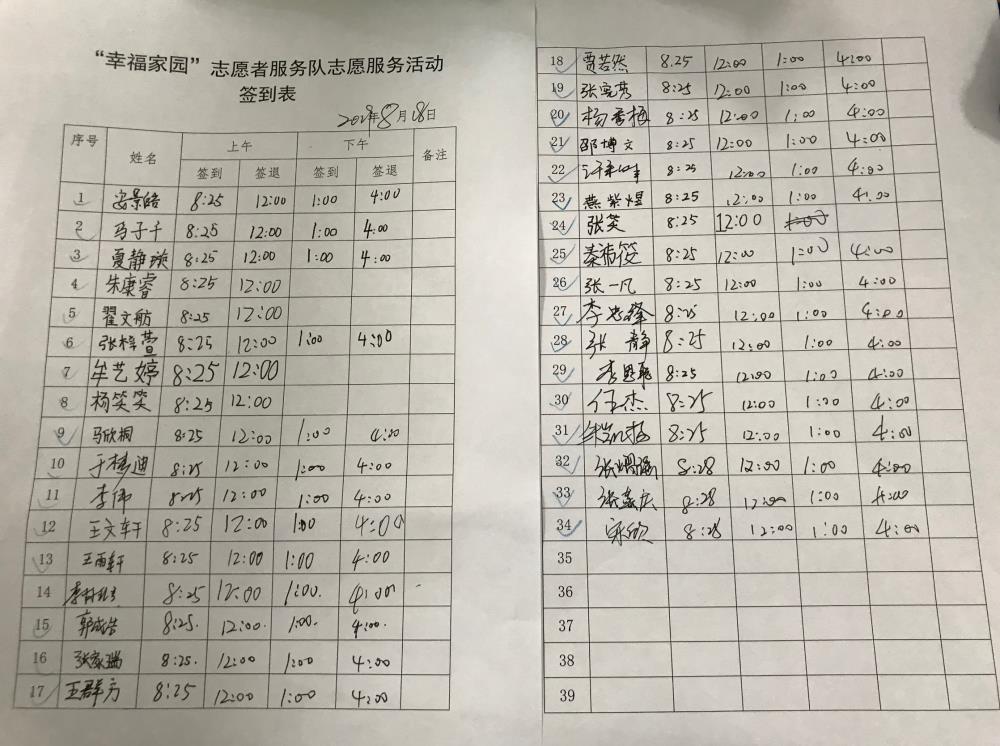 “幸福家园”志愿者服务队志愿服务活动
签到表
8月18日
序号 姓名 上午 下午 备注
签到 签退 签到 签退
1 安景皓 8:25 12:00 1:00 4:00
2 马子千 8:25 12:00 1:00 4:00
3 夏静瑛 8:25 12:00 1:00 4:00
4 朱康睿 8:25 12:00
5 翟文舫 8:25 12:00
6 张梓萱 8:25 12:00 1:00 4:00
7 牟艺婷 8:25 12:00
8 杨笑笑 8:25 12:00
9 马欣桐 8:25 12:00 1:00 4:00
10 于梦迪 8:25 12:00 1:00 4:00
11 李伟 8:25 12:00 1:00 4:00
12 王文轩 8:25 12:00 1:00 4:00
13 王雨轩 8:25 12:00 1:00 4:00
14 8:25 12:00 1:00. 4:00
15 郭成浩 8:25. 12:00. 1:00. 4:00.
16 张家瑞 8:25. 12:00 1:00 4:00
17 王群方 8:25 12:00 1:00 4:00
18 贾若然 8.25 12:00 1:00 4:00
19 张宪秀 8:25 12:00 1:00 4:00
20 杨香梅 8:25 12:00 1:00 4:00
21 邵博文 8:25 12:00 1:00 4:00
22 8:25 12:00 1:00 4:00
23 燕紫煜 8:25 12:00 1:00 4:00
24 张笑 8:25 12:00 1:00
25 秦希筱 8:25 12:00 1:00 4:00
26 张一凡 8:25 12:00 1:00 4:00
27 李志锋 8:25 12:00 1:00 4:00
28 张静 8:25 12:00 1:00 4:00
29 8:25 12:00 1:00 4:00
30 任杰 8:25 12:00 1:00 4:00
31 8:25 12:00 1:00 4:00
32 8:28 12:00 1:00 4:00
33 8:28 12:00 1:00 4:00
34 宋欣 8:28 12:00 1:00 4:00
35
36
37
38
39